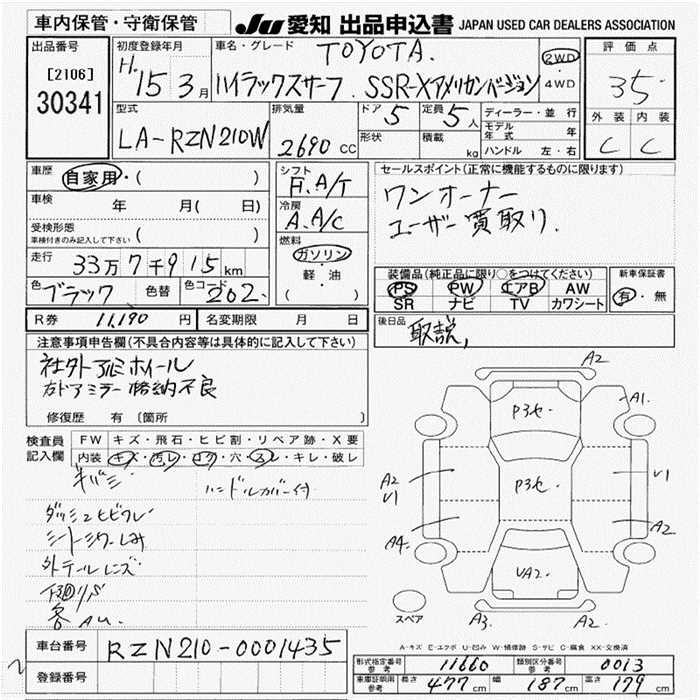 車内保管・守衛保管
JU 愛知 出品申込書 JAPAN USED CAR DEALERS ASSOCIATION
出品番号
[2106]
30341
初度登録年月
H.15 3月
車名・グレード
TOYOTA.
ハイラックスサーフ. SSR-Xアメリカンバージョン
2WD
・
4WD
評価点
35
外装 内装
C C
型式
LA-RZN210W
排気量
2690 CC
ドア 5
定員 5 人
形状
積載 kg
ディーラー・並行
モデル年式 年
ハンドル 左・右
車歴 自家用・( )
車検 年 月( 日)
受検形態
車検付きのみ記入して下さい ( )
走行 33万7千915km
色 ブラック 色替 色コード 202.
シフト
F. A/T
冷房
A. A/C
燃料
ガソリン
・
軽・油
( )
セールスポイント(正常に機能するものに限ります)
ワンオーナー
ユーザー買取り.
装備品(純正品に限り○をつけてください)
PS PW エアB AW
SR ナビ TV カワシート
新車保証書
有・無
後日品
取説,
R券 11,190 円 名変期限 月 日
注意事項申告欄(不具合内容等は具体的に記入して下さい)
社外アルミホイール
右ドアミラー格納不良
修復歴 有〔箇所
検査員
記入欄
FW キズ・飛石・ヒビ割・リペア跡・X要
内装 キズ・汚レ・コゲ・穴・スレ・キレ・破レ
キバミ
ハンドルカバー付
ダッシュヒビワレ
シートシワ・しみ
外テールレンズ
A2
A1.
P3セ.
P3セ.
A2
U1
U1
A4.
A2
UA2.
スペア
A3.
A2
A-キズ E-エクボ U-凹み W-補修跡 S-サビ C-腐食 XX-交換済
車台番号 RZN210-0001435
登録番号
形式指定番号
参考
11660
類別区分番号
参考
0013
車庫証明用
参考
長さ 477 cm 幅 187 cm 高さ 179 cm